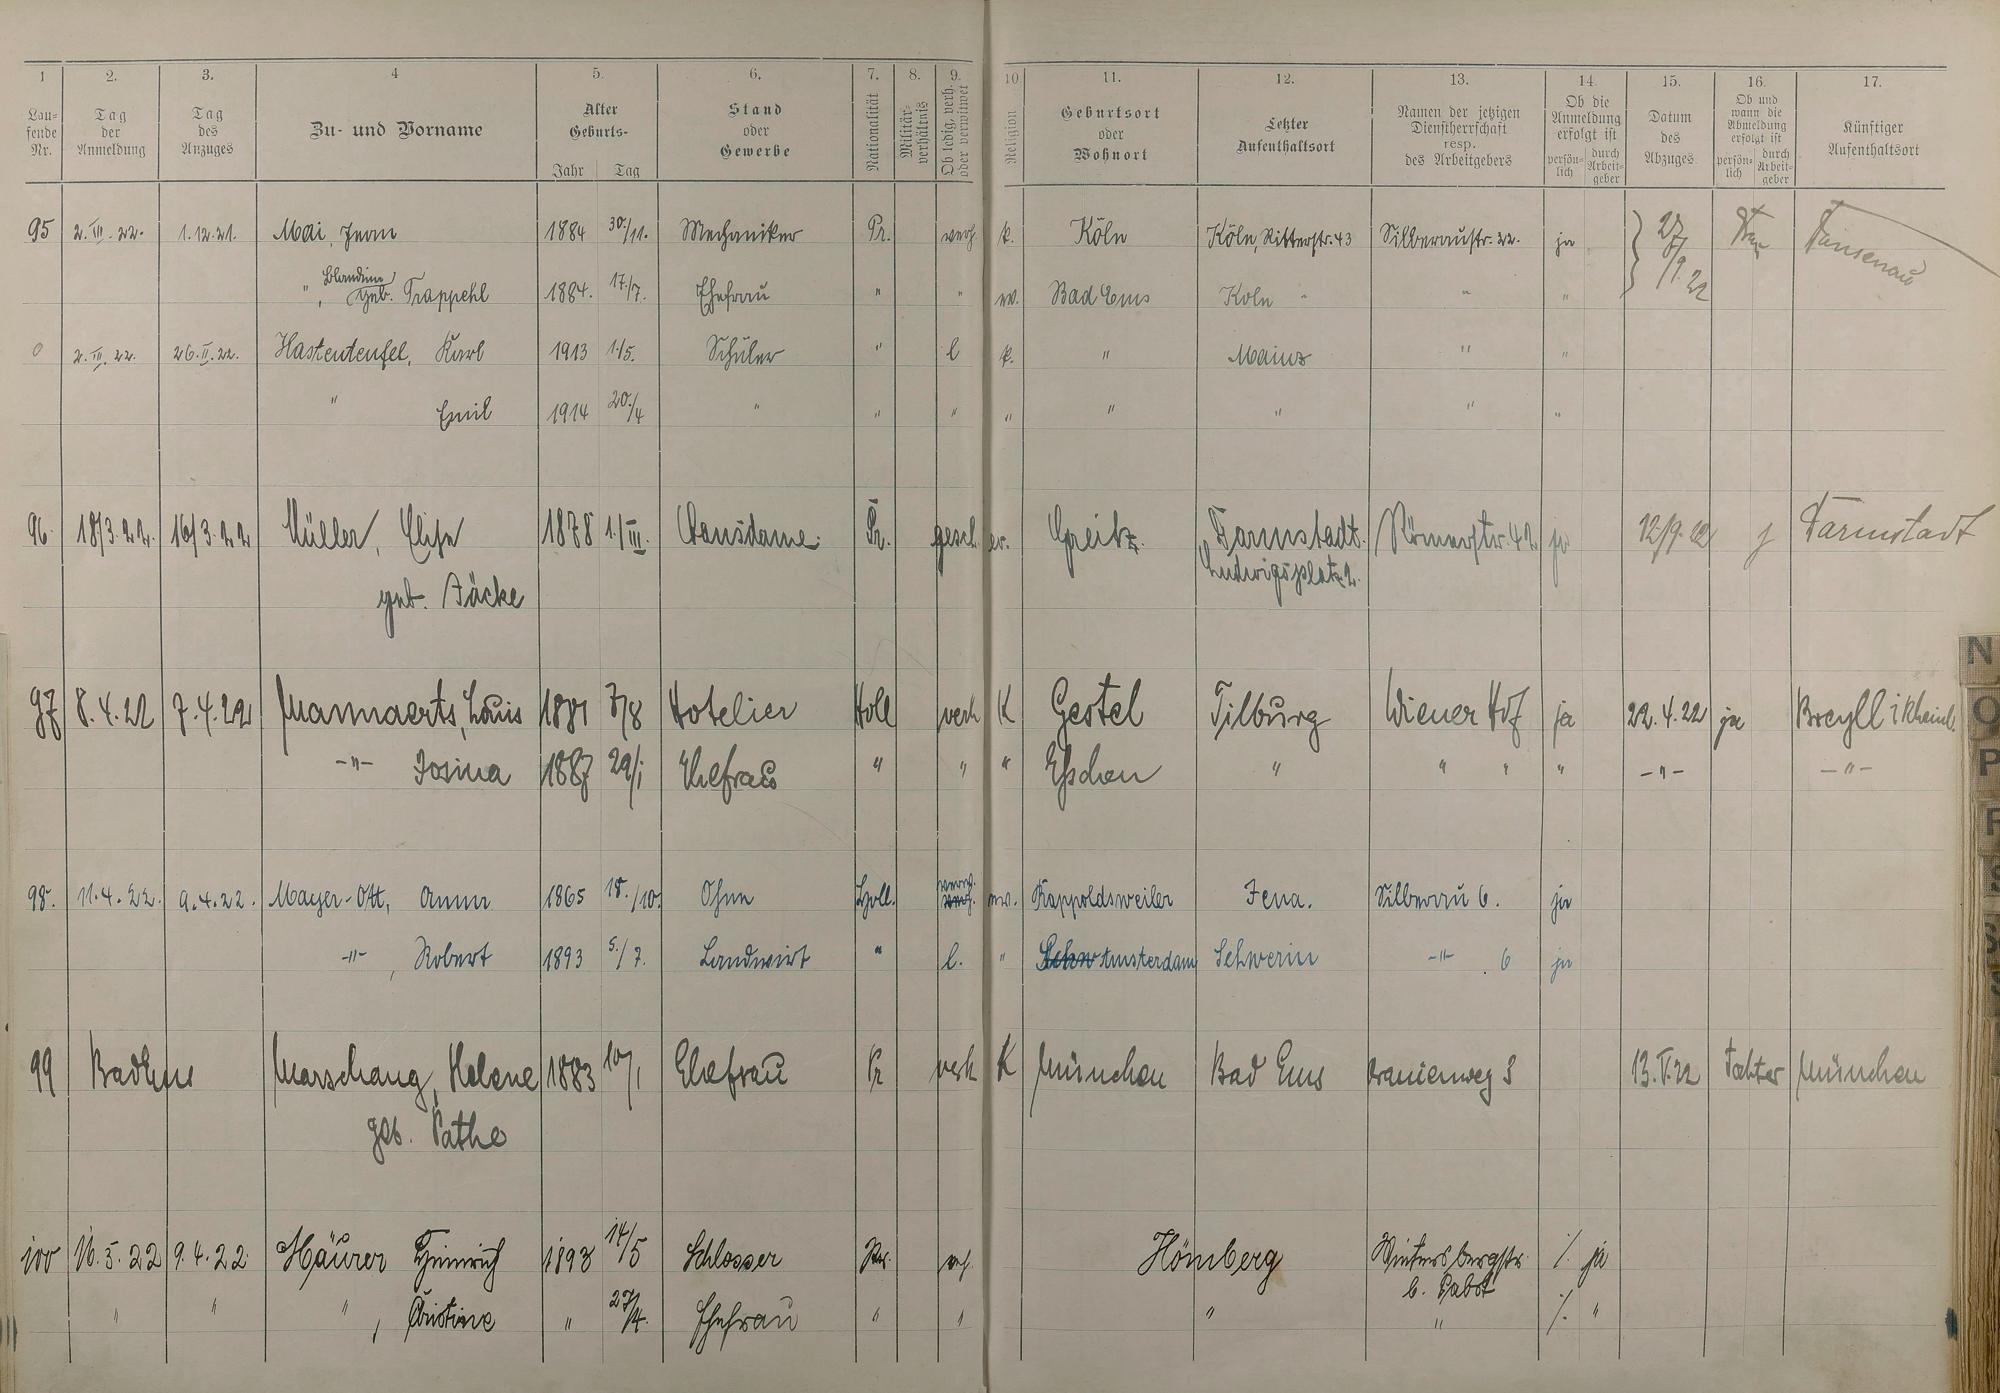 1 2. 3. 4 5. 6. 7. 8. 9. 10 11. 12. 13. 14. 15. 16. 17.
Lau=fende Nr. Tag der Anmeldung Tag des Anzuges Zu- und Vorname Alter Geburts- Jahr Tag Stand oder Gewerbe Nationalität Militär-verhältnis Ob ledig, verh. oder verwitwet Religion Geburtsort oder Wohnort Letzter Aufenthaltsort Namen der jetzigen Dienstherrschaft resp. des Arbeitgebers Ob die Anmeldung erfolgt ist persön-lich durch Arbeit-geber Datum des Abzuges Ob und wann die Abmeldung erfolgt ist persön-lich durch Arbeit-geber Künftiger Aufenthaltsort
95 2. III. 22. 1.12.21. Mai, Jean 1884 30./11. Mechaniker Pr. verh k. Köln Köln, Ritterstr. 43 Silberaustr. 22. ja 27/9.22
" Blandine geb. Trappehl 1884. 17./7. Ehefrau " " ev. Bad Ems Köln " " "
0 2. III. 22. 26. II. 22. Hastenteufel, Karl 1913 1./5. Schüler " l k. " Mainz " "
" Emil 1914 20./4 " " " " " " " "
96 18/3.22. 16/3.22 Müller, Elise 1878 1./III. Hausdame Pr. gesch. ev. Greitz. Darmstadt. Römerstr. 42 ja 12/9.22 j Darmstadt
geb. Jäcke Ludwigsplatz 2.
97 8.4.22 7.4.22 Mannaerts, Louis 1881 7/8 Hotelier Holl verh K Gestel Tilburg Wiener Hof ja 22.4.22 ja Breyell i Rheinl.
-"- Josina 1887 29/1 Ehefrau " " " Eschen " " " " -"- -"-
98. 11.4.22. 9.4.22. Mayer-Ott, Anna 1865 18./10. Ohne Holl. verw. ev. Rappoldsweiler Jena. Silberau 6. ja
-"-, Robert 1893 5./7. Landwirt " l. " Amsterdam Schwerin -"- 6 ja
99 Bad Ems Marschang, Helene 1883 10/1 Ehefrau Pr verh K München Bad Ems Oranienweg 3 13.V.22 Tochter München
geb. Pathe
100 16.5.22 9.4.22 Häurer Heinrich 1893 14/5 Schlosser Pr. verh. Hömberg Wintersbergstr. b. Pabst ·/. ja
" " ", Christine " 27/4. Ehefrau " " " " ·/. "
N
O
P